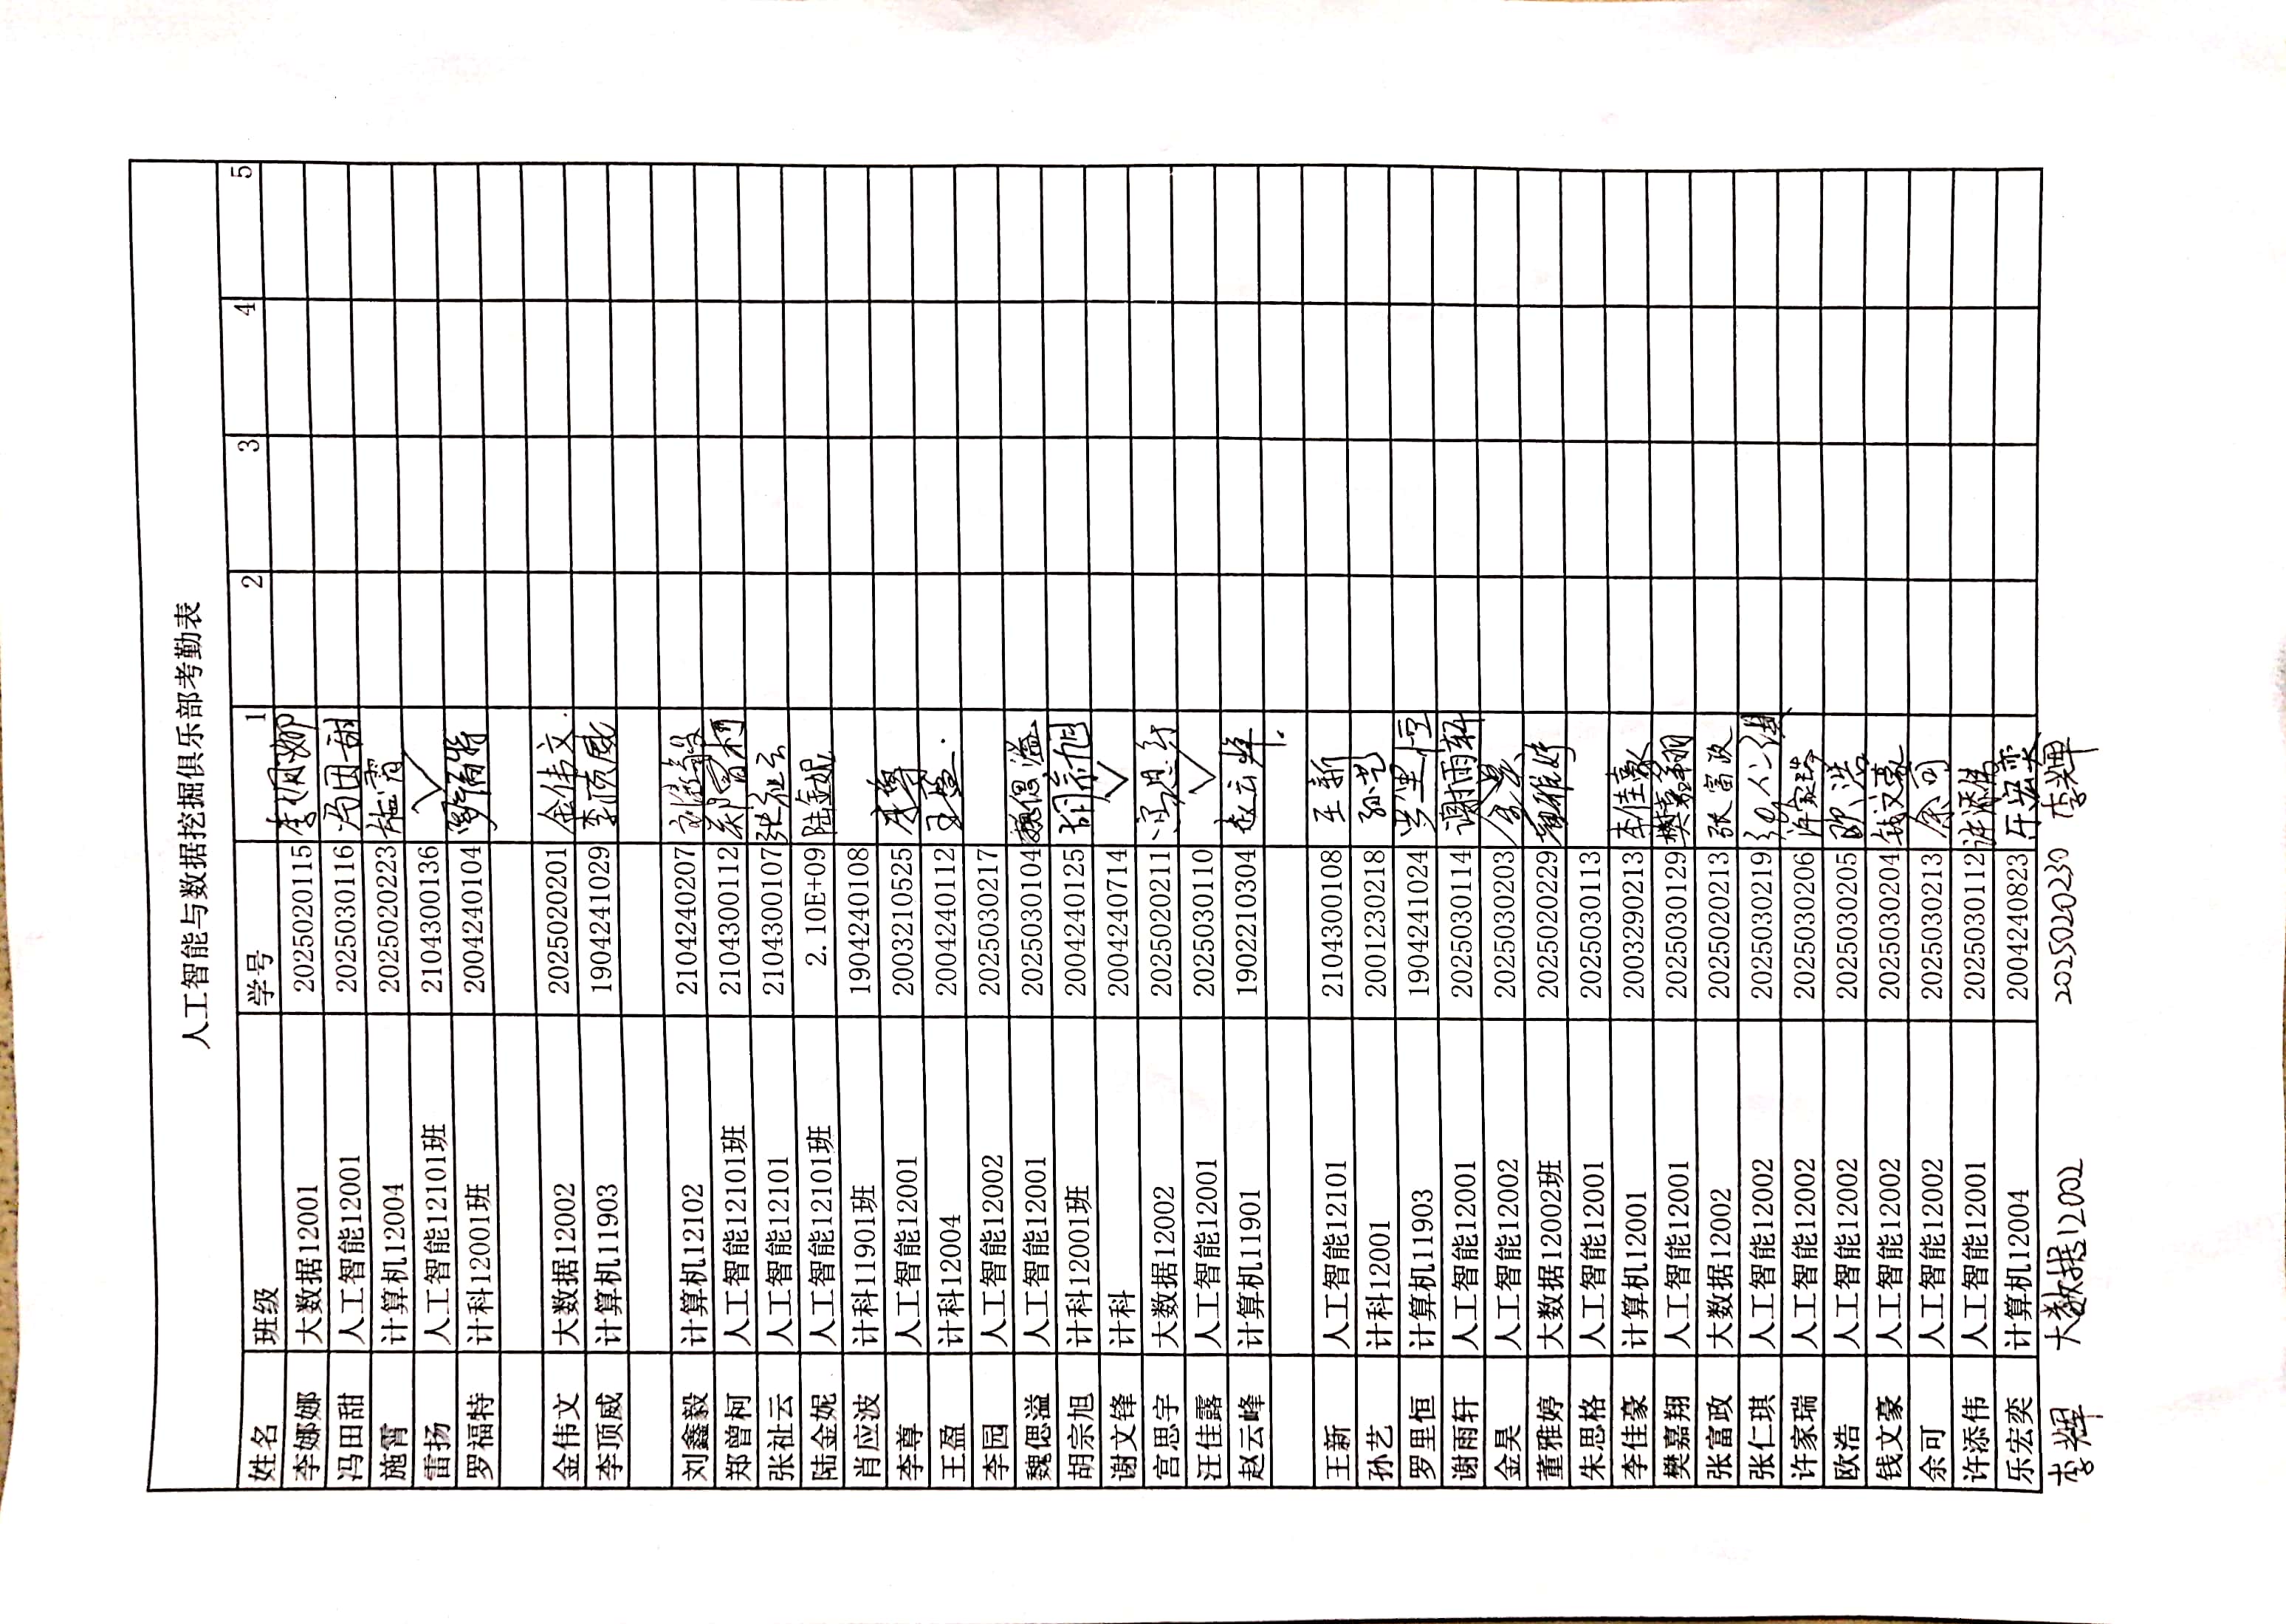 人工智能与数据挖掘俱乐部考勤表
姓名 班级 学号 1 2 3 4 5
李娜娜 大数据12001 2025020115 李娜娜
冯田甜 人工智能12001 2025030116 冯田甜
施霄 计算机12004 2025020223 施霄
雷扬 人工智能12101班 2104300136 ✓
罗福特 计科12001班 2004240104 罗福特
金伟文 大数据12002 2025020201 金伟文.
李顶威 计算机11903 1904241029 李顶威
刘鑫毅 计算机12102 2104240207 刘鑫毅
郑曾柯 人工智能12101班 2104300112 郑曾柯
张祉云 人工智能12101 2104300107 张祉云
陆金妮 人工智能12101班 2.10E+09 陆金妮
肖应波 计科11901班 1904240108
李尊 人工智能12001 2003210525 李尊
王盈 计科12004 2004240112 王盈.
李园 人工智能12002 2025030217
魏偲溢 人工智能12001 2025030104 魏偲溢
胡宗旭 计科12001班 2004240125 胡宗旭
谢文锋 计科 2004240714 ✓
宫思宇 大数据12002 2025020211 宫思宇
汪佳露 人工智能12001 2025030110 ✓
赵云峰 计算机11901 1902210304 赵云峰.
王新 人工智能12101 2104300108 王新
孙艺 计科12001 2001230218 孙艺
罗里恒 计算机11903 1904241024 罗里恒
谢雨轩 人工智能12001 2025030114 谢雨轩
金昊 人工智能12002 2025030203 金昊
董雅婷 大数据12002班 2025020229 董雅婷
朱思格 人工智能12001 2025030113
李佳豪 计算机12001 2003290213 李佳豪
樊嘉翔 人工智能12001 2025030129 樊嘉翔
张富政 大数据12002 2025020213 张富政
张仁琪 人工智能12002 2025030219 张仁琪
许家瑞 人工智能12002 2025030206 许家瑞
欧浩 人工智能12002 2025030205 欧浩
钱文豪 人工智能12002 2025030204 钱文豪
余可 人工智能12002 2025030213 余可
许添伟 人工智能12001 2025030112 许添伟
乐宏奕 计算机12004 2004240823 乐宏奕
李辉 大数据12002 2025020230 李辉